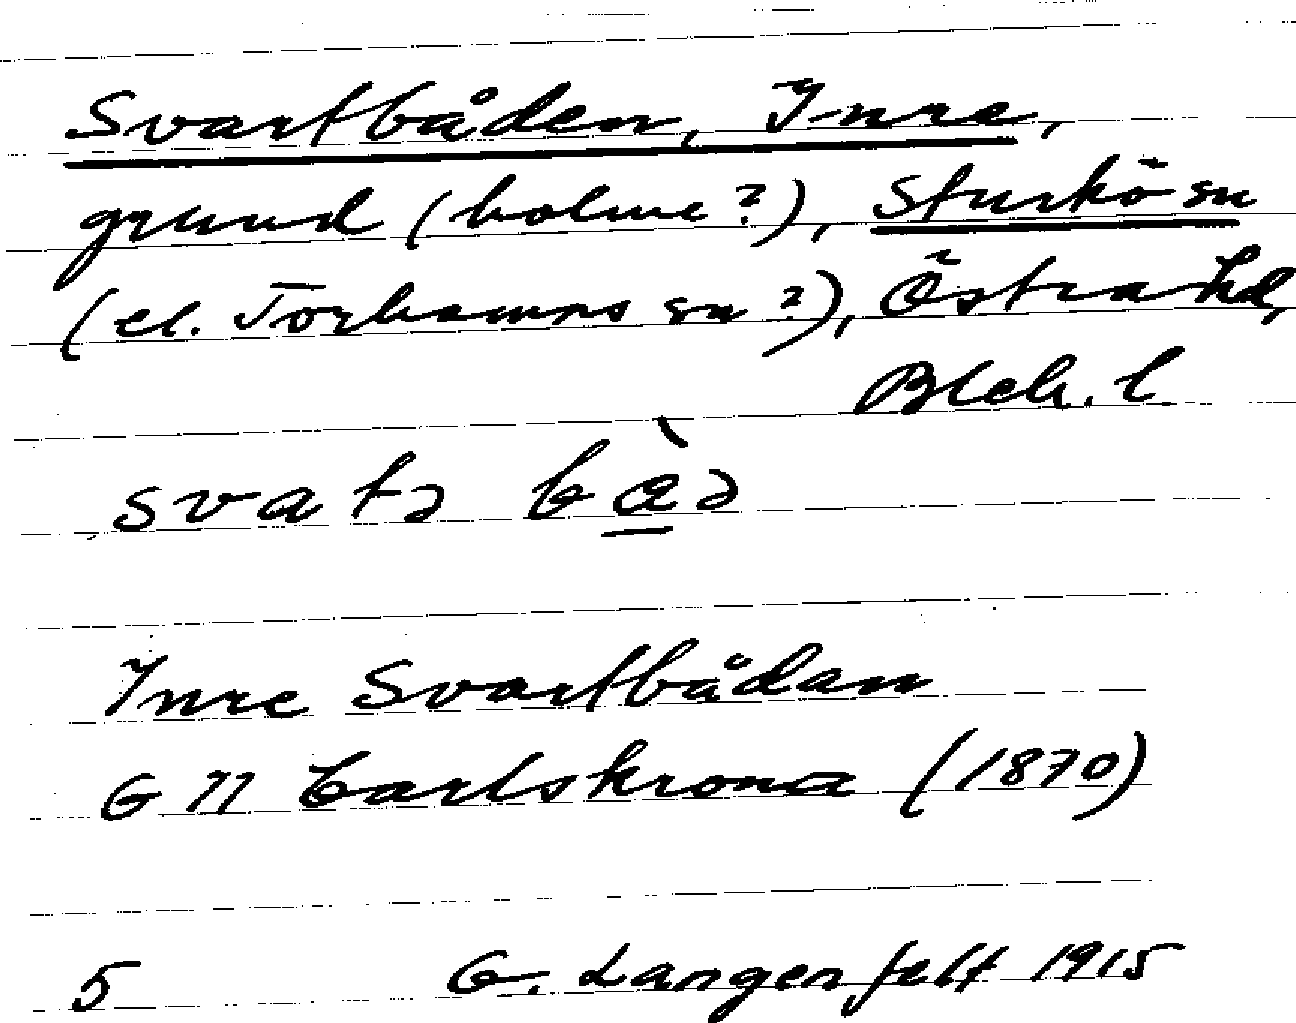 Svartbåden, Inre,
grund (holme?), Sturkö sn
(el. Torhamns sn?), Östra hd,
Blek. l
svatə bàə
Inre Svartbådan
G 77 Carlskrona (1870)
5 G. Langenfelt 1915